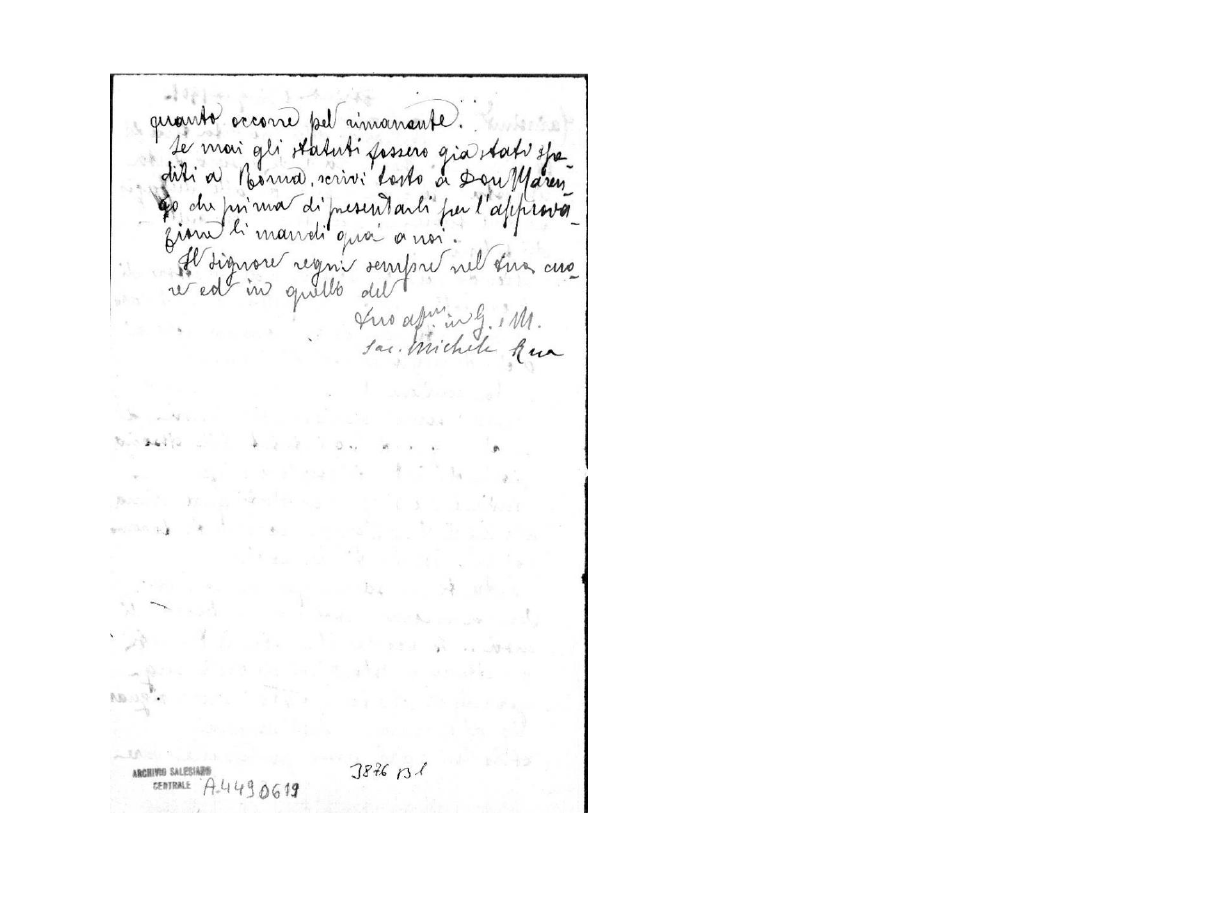 quanto occorre pel rimanente.
Se mai gli statuti fossero già stati spe-
diti a Roma, scrivi tosto a Don Maren-
go che prima di presentarli per l'approva-
zione li mandi quà a noi.
Il Signore regni sempre nel tuo cuo-
re ed in quello del
tuo aff.mo in G. e M.
Sac. Michele Rua
ARCHIVIO SALESIANO
CENTRALE A4490619
3876 B1